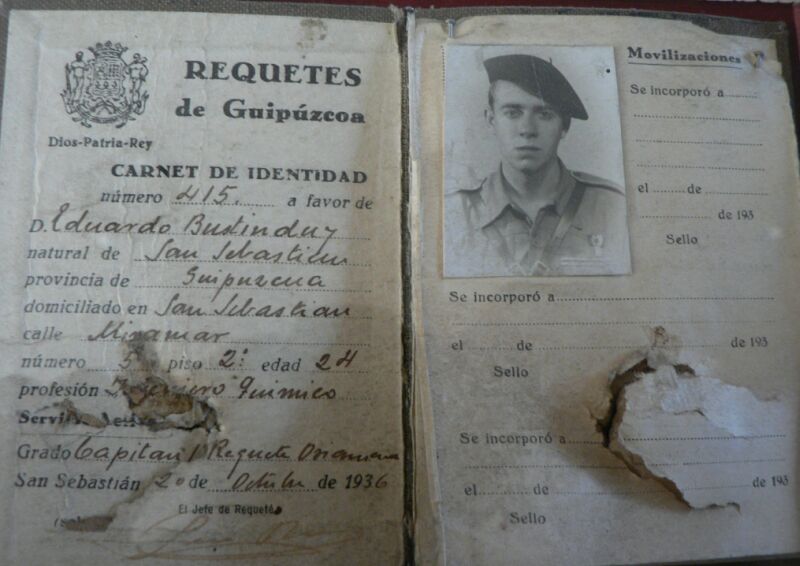 REQUETES
de Guipúzcoa
Dios-Patria-Rey
CARNET DE IDENTIDAD
número 415. a favor de
D. Eduardo Bustinduy
natural de San Sebastian
provincia de Guipuzcoa
domiciliado en San Sebastian
calle Miramar
número 5 piso 2º edad 24
profesión Químico
Grado Capitan Requeté Oriamendi
San Sebastián 20 de Octubre de 1936
El Jefe de Requeté
Movilizaciones
Se incorporó a
el de
de 193
Sello
Se incorporó a
el de de 193
Sello
Se incorporó a
el de de 193
Sello